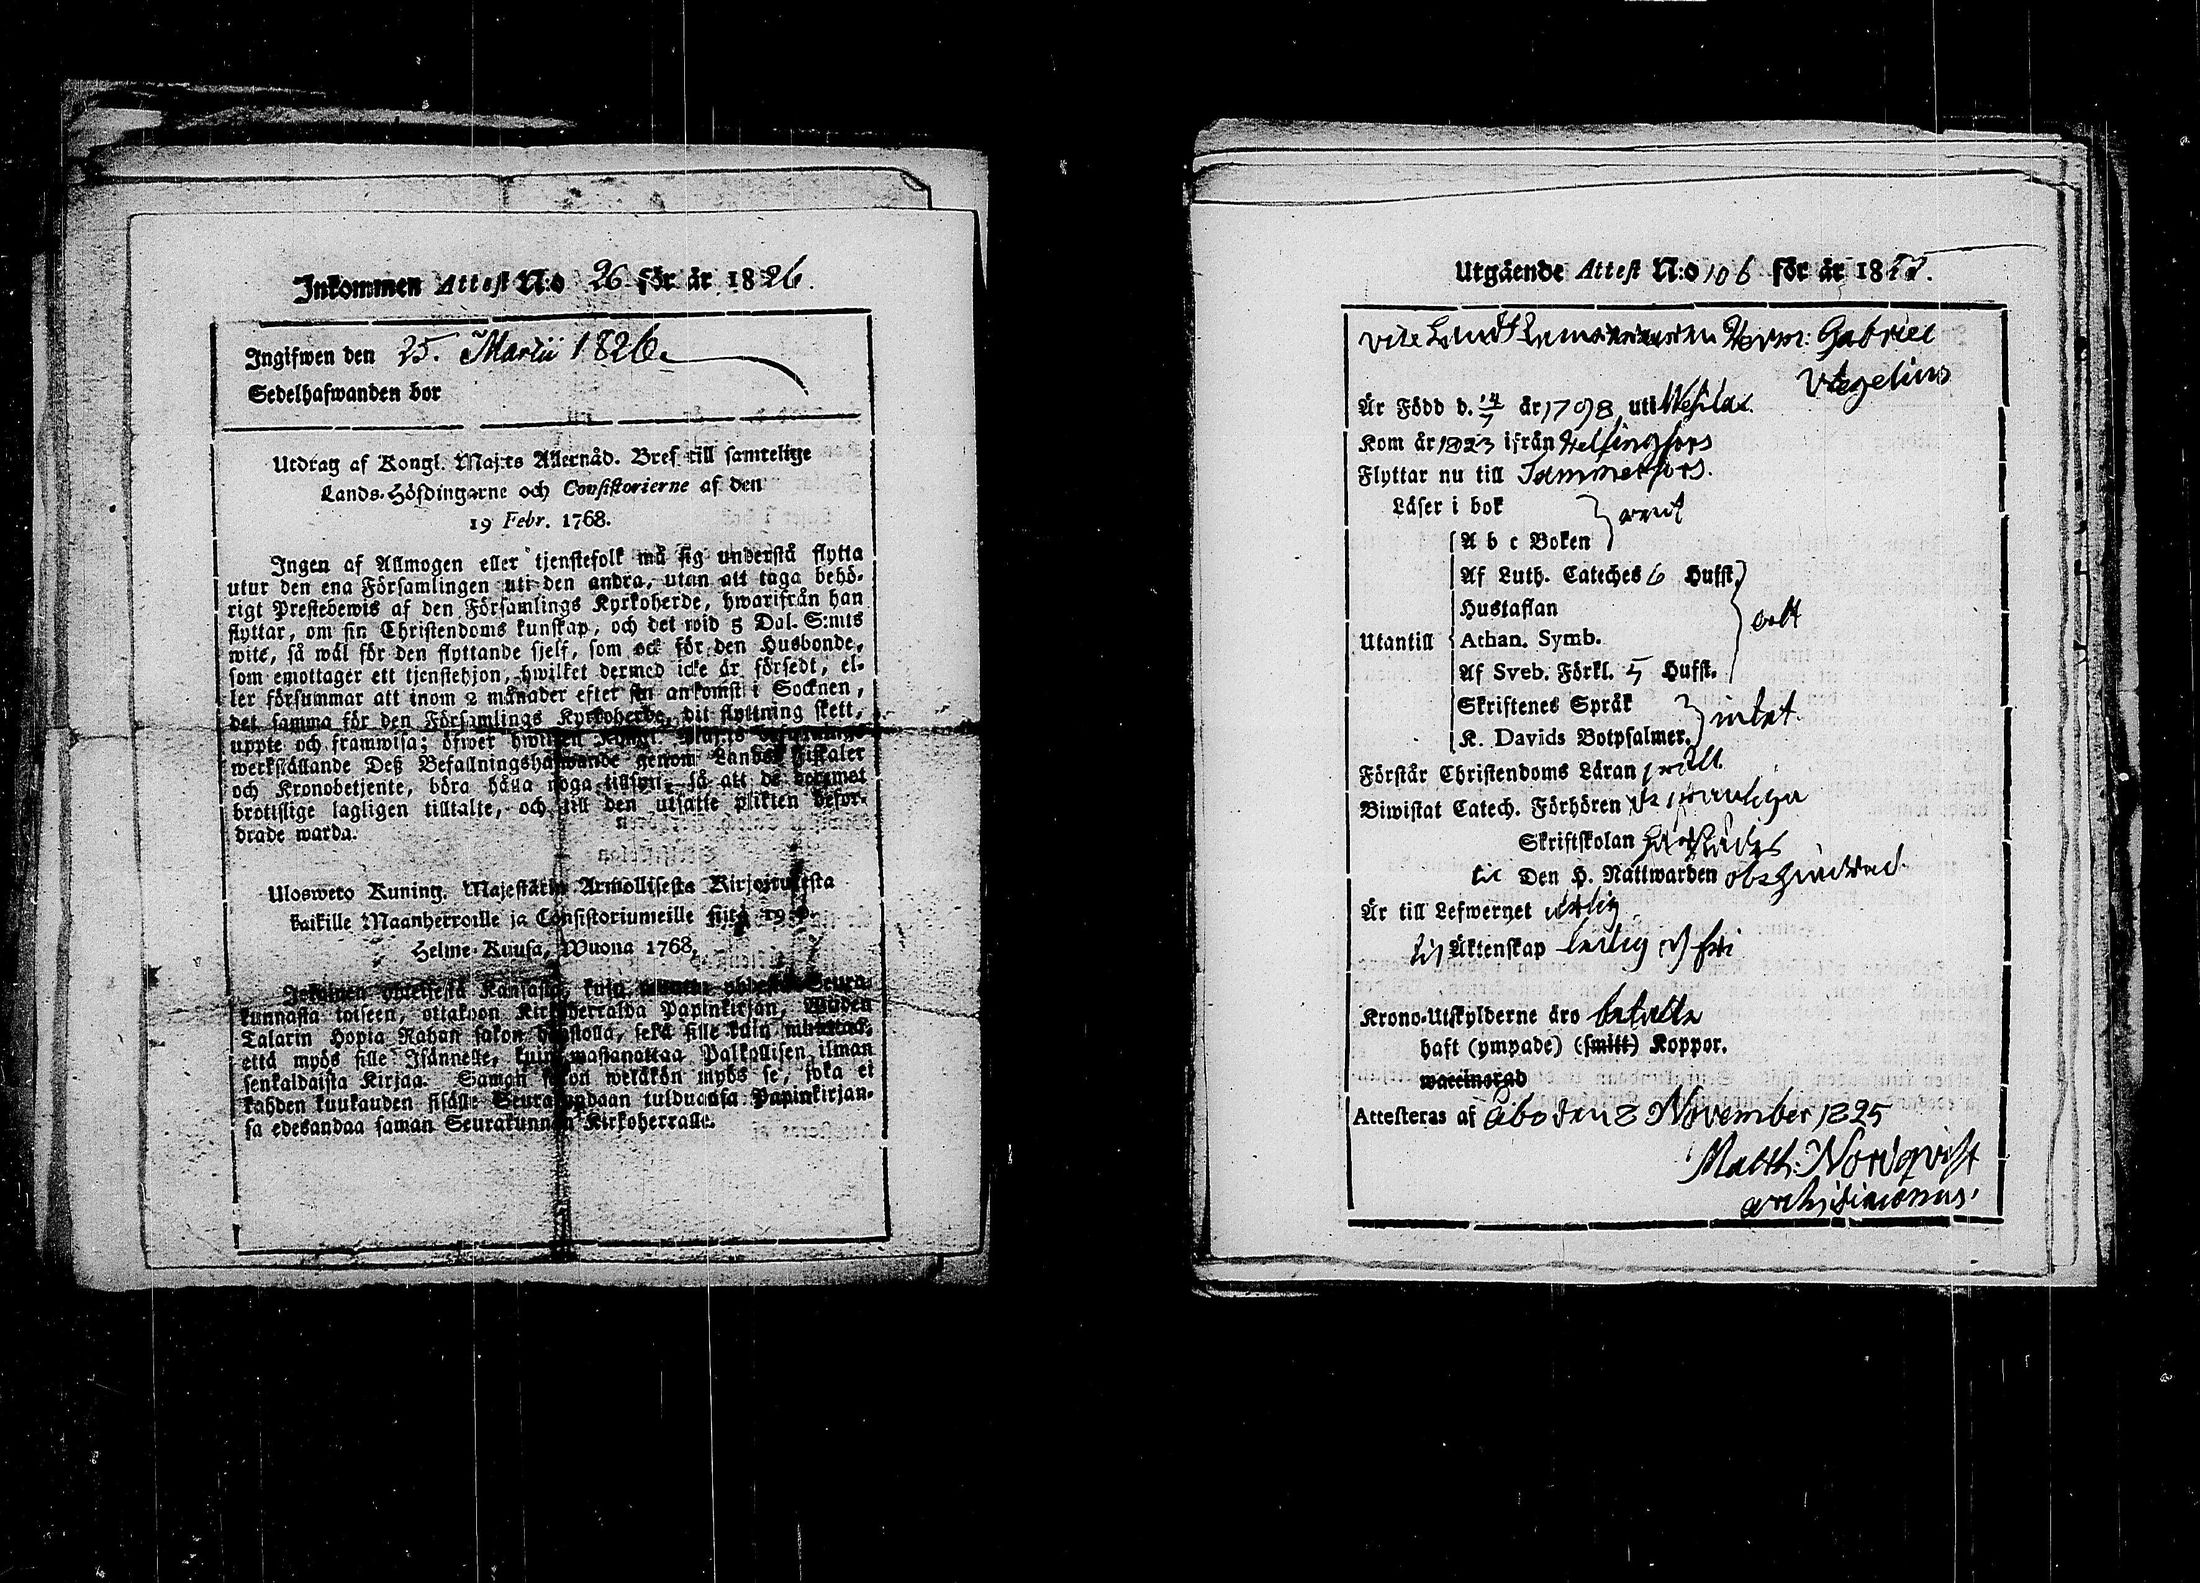 Inkommen Attest N:o 26 för år 1826.
Ingifwen den 25. Martii 1826.
Sedelhafwanden bor
Utdrag af Kongl. Maj:ts Allernåd. Bref till samtelige
Lands-Höfdingarne och Consistorierne af den
19 Febr. 1768.
Ingen af Allmogen eller tjenstefolk må sig understå flytta
utur den ena Församlingen uti den andra, utan att taga behö-
rigt Prestebewis af den Församlings Kyrkoherde, hwarifrån han
flyttar, om sin Christendoms kunskap, och det wid 5 Dal. S:mts
wite, så wäl för den flyttande sjelf, som ock för den Husbonde,
som emottager ett tjenstehjon, hwilket dermed icke är försedt, el-
ler försummar att inom 2 månader efter sin ankomst i Socknen,
det samma för den Församlings Kyrkoherde, dit flyttning skett,
uppte och framwisa; öfwer hwilken Kongl. Maj:ts
werkställande Deß Befallningshafwande genom Lands Fiskaler
och Kronobetjente, böra hålla noga tillsyn, så att de
brottslige lagligen tilltalte, och till den utsatte plikten befor-
drade warda.
Ulosweto Kuning. Majestätin Armollisesta Kirjoituksesta
kaikille Maanherroille ja Consistoriumeille siitä 19 p.
Helme-Kuusa, Wuona 1768.
Jokainen yhteisestä Kansasta, kuin Seura-
kunnasta toiseen, ottakoon Kirkkoherralda Papinkirjan, Wiiden
Talarin Hopia Rahan sakon haastolla, sekä sille kuin
että myös sille Isännelle, kuin wastanottaa Palkollisen ilman
senkaldaista Kirjaa. Saman sakon weläkön myös se, joka ei
kahden kuukauden sisälle Seurakundaan tulduansa Papinkirjan-
sa edesandaa saman Seurakunnan Kirkoherralle.
Utgående Attest N:o 106 för år 18
vice Herm: Gabriel
Är Född d. 14/7 år 1798 uti Wesilax.
Kom år 1823 ifrån Helsingfors
Flyttar nu till Tammerfors.
Läser i bok
A b c Boken
Af Luth. Cateches 6 Hufst.
Hustaflan
Utantill Athan. Symb.
Af Sveb. Förkl. 5 Hufst.
Skriftenes Språk
K. Davids Botpsalmer.
Förstår Christendoms Läran
Biwistat Catech. Förhören
Skriftskolan
til Den H. Nattwarden obehindrad
Är till Lefwernet
til Äktenskap ledig och fri
Krono-Utskylderne äro betalta
haft (ympade) (smitt) Koppor.
waccinerad
Attesteras af Åbo den 8 November 1825
Matth: Nordqvist
archidiaconus.